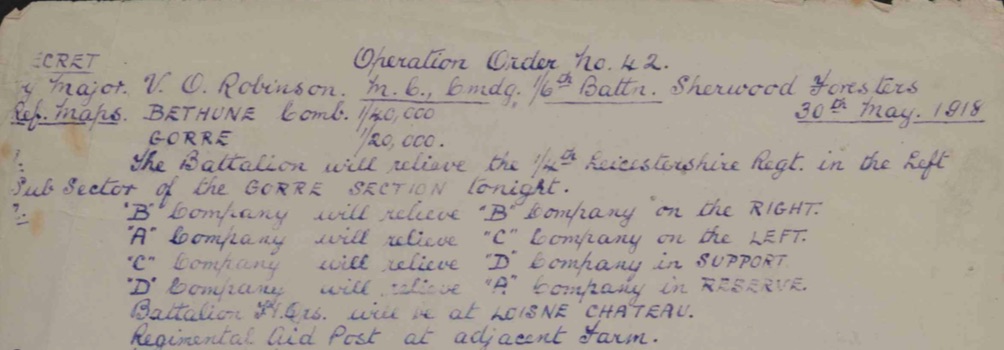 ECRET Operation Order No. 42.
y Major. V. O. Robinson. M.C., Cmdg. 1/6th Battn. Sherwood Foresters
Ref. Maps. BETHUNE Comb. 1/40,000 30th May. 1918
GORRE 1/20,000.
The Battalion will relieve the 1/4th Leicestershire Regt. in the Left
Sub Sector of the GORRE SECTION tonight.
"B" Company will relieve "B" Company on the RIGHT.
"A" Company will relieve "C" Company on the LEFT.
"C" Company will relieve "D" Company in SUPPORT.
"D" Company will relieve "A" Company in RESERVE.
Battalion H.Qrs. will be at LOISNE CHATEAU.
Regimental Aid Post at adjacent Farm.